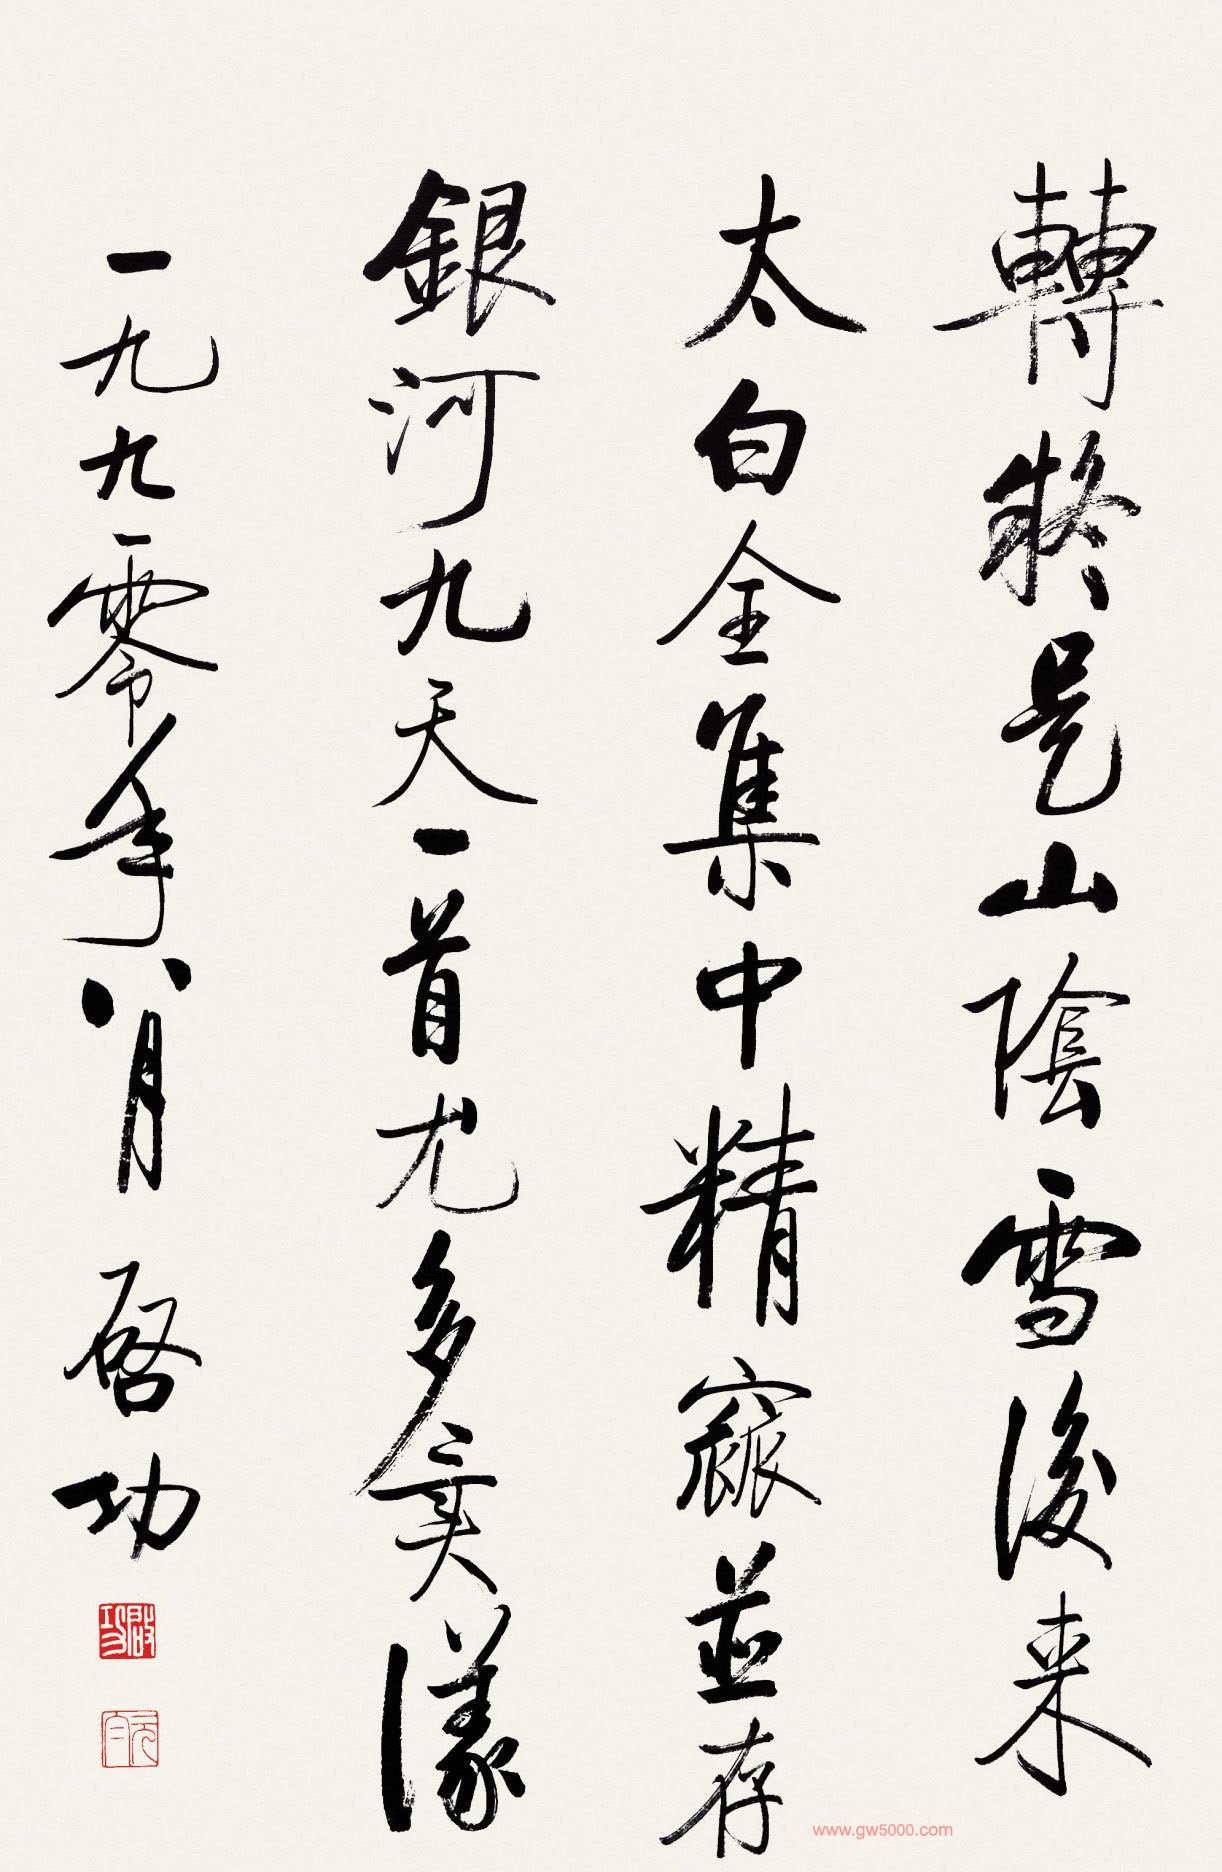 轉疑是山陰雪後来
太白全集中精窳並存
銀河九天一首尤多異議
一九九零年八月 啓功
啟功
元白
www.gw5000.com